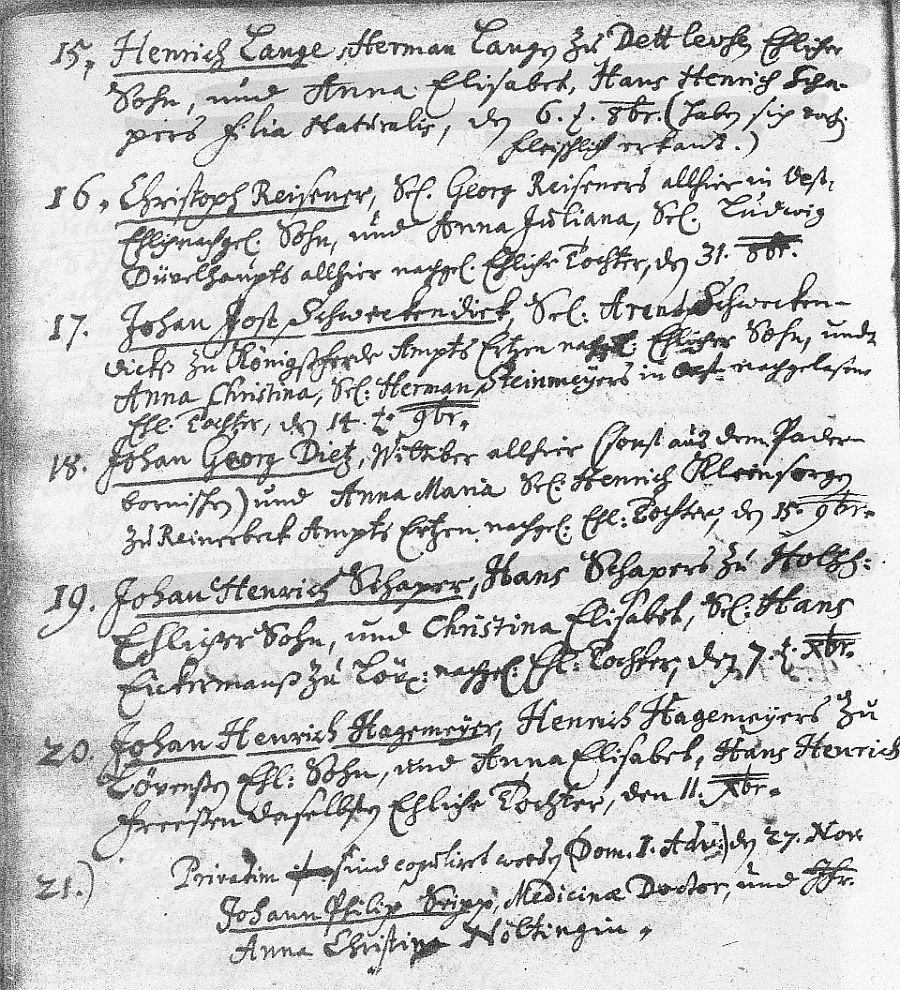 15, Henrich Lange, Herman Langen zu Dettlevsen Ehlicher
Sohn, und Anna Elisabet, Hans Henrich Scha-
pers filia Naturalis, den 6. t. 8br. (haben sich
fleischlich erkant.)
16, Christoph Reisener, Sel. Georg Reiseners allhier in Oest,
Ehlichnachgel. Sohn, und Anna Juliana, Sel. Ludwig
Düvelhaupts allhier nachgel. Ehliche Tochter, den 31. 8br.
17. Johan Jost Schweckendick, Sel: Arend Schwecken-
dicks zu Königsförde Ampts Ertzen nachgel: Ehlicher Sohn, undt
Anna Christina, Sel: Herman Steinmeyers in Oest nachgelasene
Ehl. Tochter, den 14. t. 9br.
18. Johan Georg Dietz, Wittiber allhier (sonst aus dem Pader-
bornischen) und Anna Maria Sel: Henrich Kleinsorgen
zu Reinerbeck Ampts Ertzen nachgel: Ehl: Tochter, den 15. 9br.
19. Johan Henrich Schaper, Hans Schapers zu Holtzh:
Ehlicher Sohn, und Christina Elisabet, Sel: Hans
Eickermanß zu Löv: nachgel: Ehl: Tochter, den 7. t. Xbr.
20. Johan Henrich Hagemeyer, Henrich Hagemeyers zu
Lövenßen Ehl: Sohn, und Anna Elisabet, Hans Henrich
Freesen daselbsten Ehliche Tochter, den 11. Xbr.
21.) Privatim sind copuliret worden (Dom. I. Adv:) den 27. Nov
Johann Philip Seipp, Medicinæ Doctor, und Jfr.
Anna Christina Nöltingin.